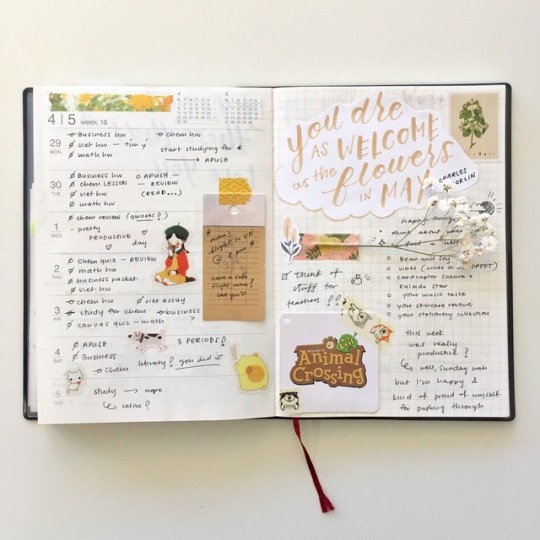 4|5 week 18
29 MON
Business hw
chem hw
Viet hw
math hw
start studying for
→ APUSH
30 TUE
Business hw
APUSH
chem LESSON - REVIEW
viet hw
(READ...)
math hw
1 WED
chem review (quizzes!)
- pretty
PRODUCTIVE
day
2 THU
chem quiz - REVIEW
math hw
business packet
viet hw
3 FRI
chem hw
viet essay
study for chem
business
canvas quiz - math
?
4 SAT
APUSH
3 PERIODS!
Business
chem
library! you did it
5
study → nope
↳ relax!
mom:
flight to VN
@ 8 pm
have a safe
flight, mom!
love you
You are
AS WELCOME
as the flowers
IN MAY
CHARLES
happy things:
think about
Bean and Soy
cardcaptor Sakura
Kaleido Star
your music taste
your skincare routine
your stationery collection
think of
stuff for
teachers!!
Animal
Crossing
this week
was really
productive!
↳ well, Sunday nah
but I'm happy &
kind of proud of myself
for pushing through